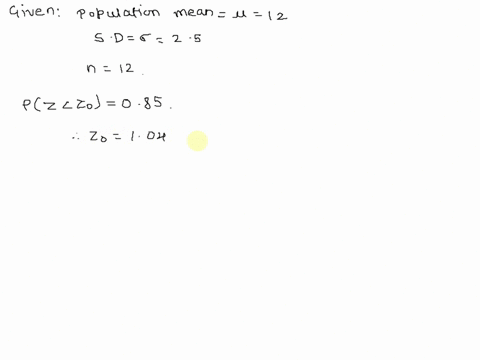 Given: population mean = μ = 12
S.D = σ = 2.5
n = 12.
P(Z < Z₀) = 0.85.
∴ Z₀ = 1.04